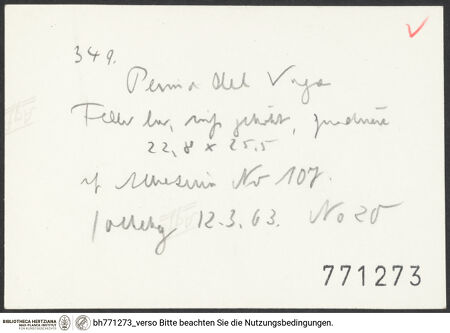 349.
Perino del Vaga
Feder br, weiß gehöht, quadriert
22,8 x 25,5
cf No 107.
Sotheby 12.3.63. No 20
771273
BIBLIOTHECA HERTZIANA
MAX-PLANCK-INSTITUT
FÜR KUNSTGESCHICHTE
bh771273_verso Bitte beachten Sie die Nutzungsbedingungen.